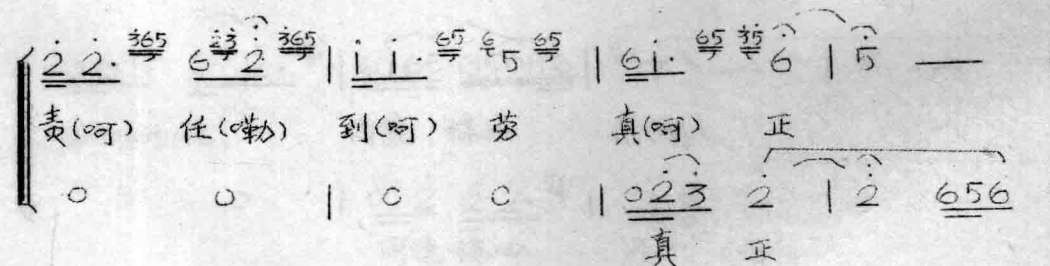 2̇ 2̇· 3̇65 6 2̇3̇ 2̇ 3̇65 | i̇ i̇· 65 6 5 65 | 6 i̇· 65 3̇5 6̇ | 5̇ —
责(呵) 任(嘞) 到(呵) 劳 真(呵) 正
0 0 | 0 0 | 0 2̇ 3̇ 2̇ | 2̇ 656
真 正